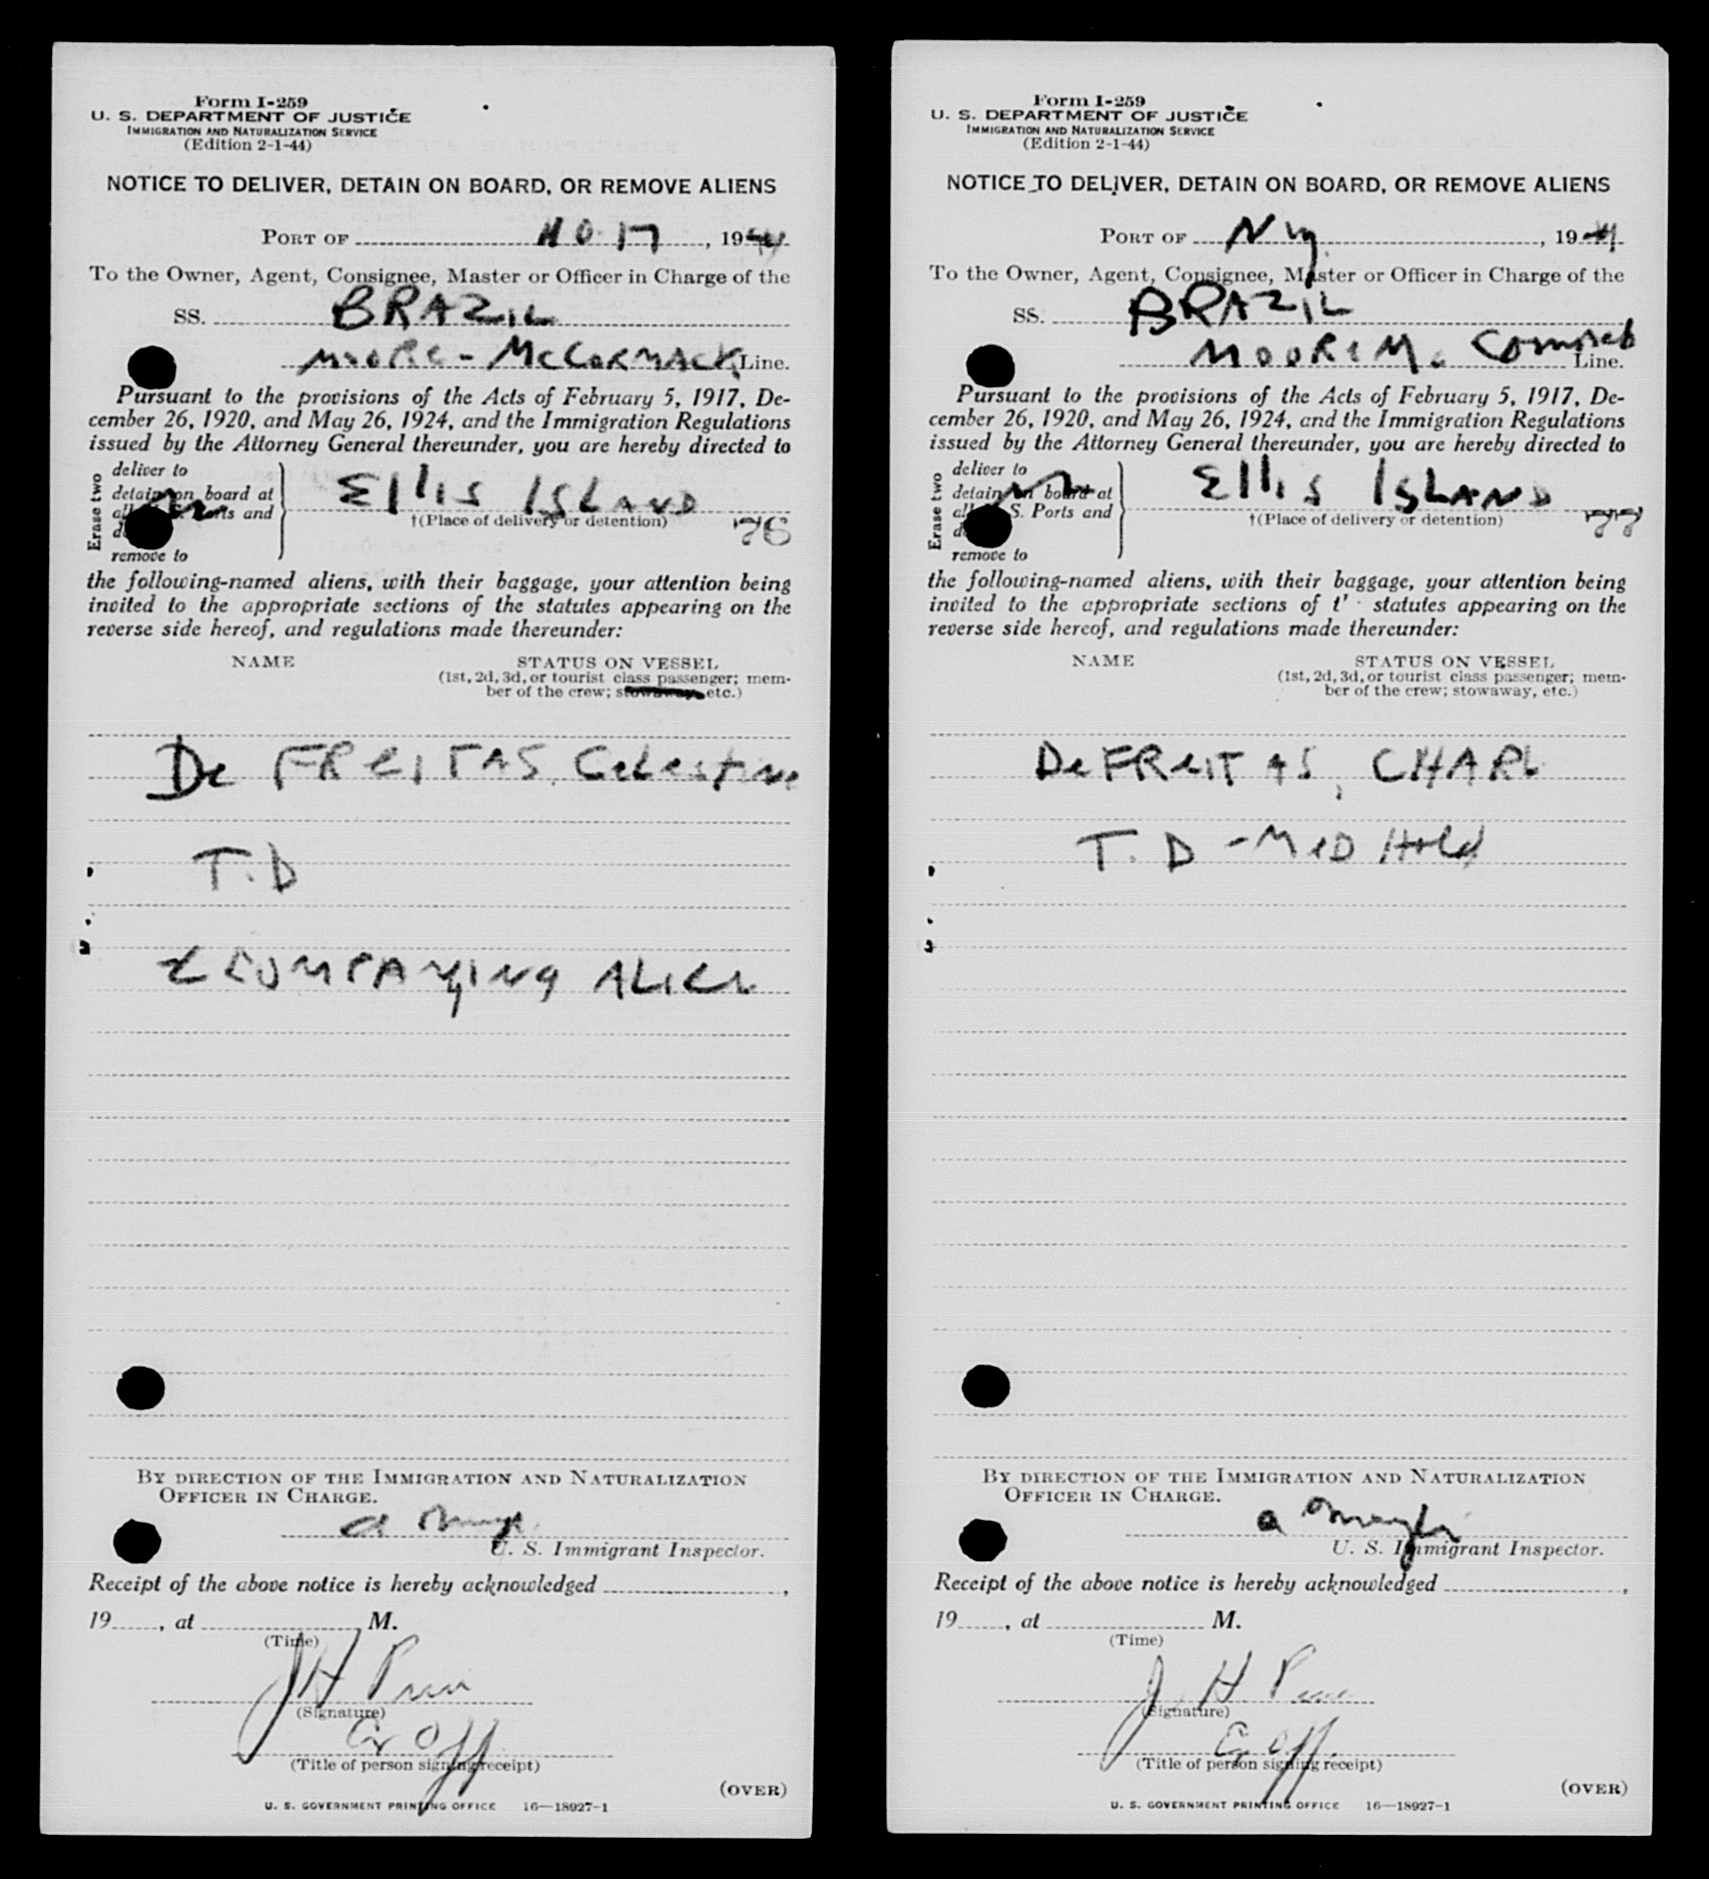 Form I-259
U. S. DEPARTMENT OF JUSTICE
IMMIGRATION AND NATURALIZATION SERVICE
(Edition 2-1-44)
NOTICE TO DELIVER, DETAIN ON BOARD, OR REMOVE ALIENS
PORT OF 17, 1944
To the Owner, Agent, Consignee, Master or Officer in Charge of the
SS. BRAZIL
MOORE - McCORMACK Line.
Pursuant to the provisions of the Acts of February 5, 1917, De-
cember 26, 1920, and May 26, 1924, and the Immigration Regulations
issued by the Attorney General thereunder, you are hereby directed to
Erase two
deliver to
detain on board at
Ports and
remove to
Ellis ISLAND
†(Place of delivery or detention)
76
the following-named aliens, with their baggage, your attention being
invited to the appropriate sections of the statutes appearing on the
reverse side hereof, and regulations made thereunder:
NAME STATUS ON VESSEL
(1st, 2d, 3d, or tourist class passenger; mem-
ber of the crew; stowaway, etc.)
De FREITAS, Celestine
T.D
ACCOMPANYING ALIEN
BY DIRECTION OF THE IMMIGRATION AND NATURALIZATION
OFFICER IN CHARGE.
U. S. Immigrant Inspector.
Receipt of the above notice is hereby acknowledged ,
19 , at M.
(Time)
J H
(Signature)
Off
(Title of person signing receipt)
(OVER)
U. S. GOVERNMENT PRINTING OFFICE 16—18927-1
Form I-259
U. S. DEPARTMENT OF JUSTICE
IMMIGRATION AND NATURALIZATION SERVICE
(Edition 2-1-44)
NOTICE TO DELIVER, DETAIN ON BOARD, OR REMOVE ALIENS
PORT OF Ny , 19
To the Owner, Agent, Consignee, Master or Officer in Charge of the
SS. BRAZIL
MOORE Mc Line.
Pursuant to the provisions of the Acts of February 5, 1917, De-
cember 26, 1920, and May 26, 1924, and the Immigration Regulations
issued by the Attorney General thereunder, you are hereby directed to
Erase two
deliver to
detain on board at
S. Ports and
remove to
Ellis ISLAND
†(Place of delivery or detention)
77
the following-named aliens, with their baggage, your attention being
invited to the appropriate sections of statutes appearing on the
reverse side hereof, and regulations made thereunder:
NAME STATUS ON VESSEL
(1st, 2d, 3d, or tourist class passenger; mem-
ber of the crew; stowaway, etc.)
DeFREITAS, CHARL
T. D - MED Hold
BY DIRECTION OF THE IMMIGRATION AND NATURALIZATION
OFFICER IN CHARGE.
U. S. Immigrant Inspector.
Receipt of the above notice is hereby acknowledged ,
19 , at M.
(Time)
J. H
(Signature)
Off.
(Title of person signing receipt)
(OVER)
U. S. GOVERNMENT PRINTING OFFICE 16—18927-1